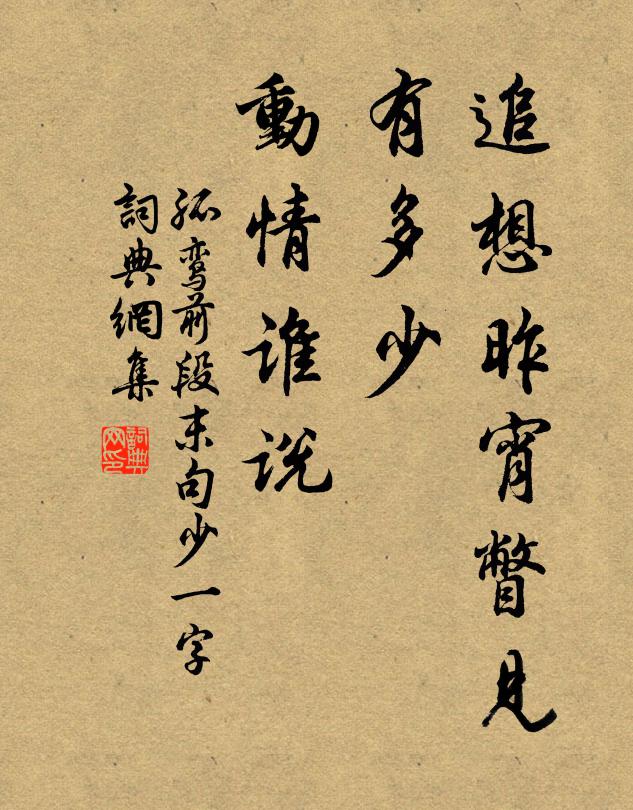 追想昨宵瞥見
有多少
動情谁说
孤鸾前段末句少一字
詞典網集
詞典网印